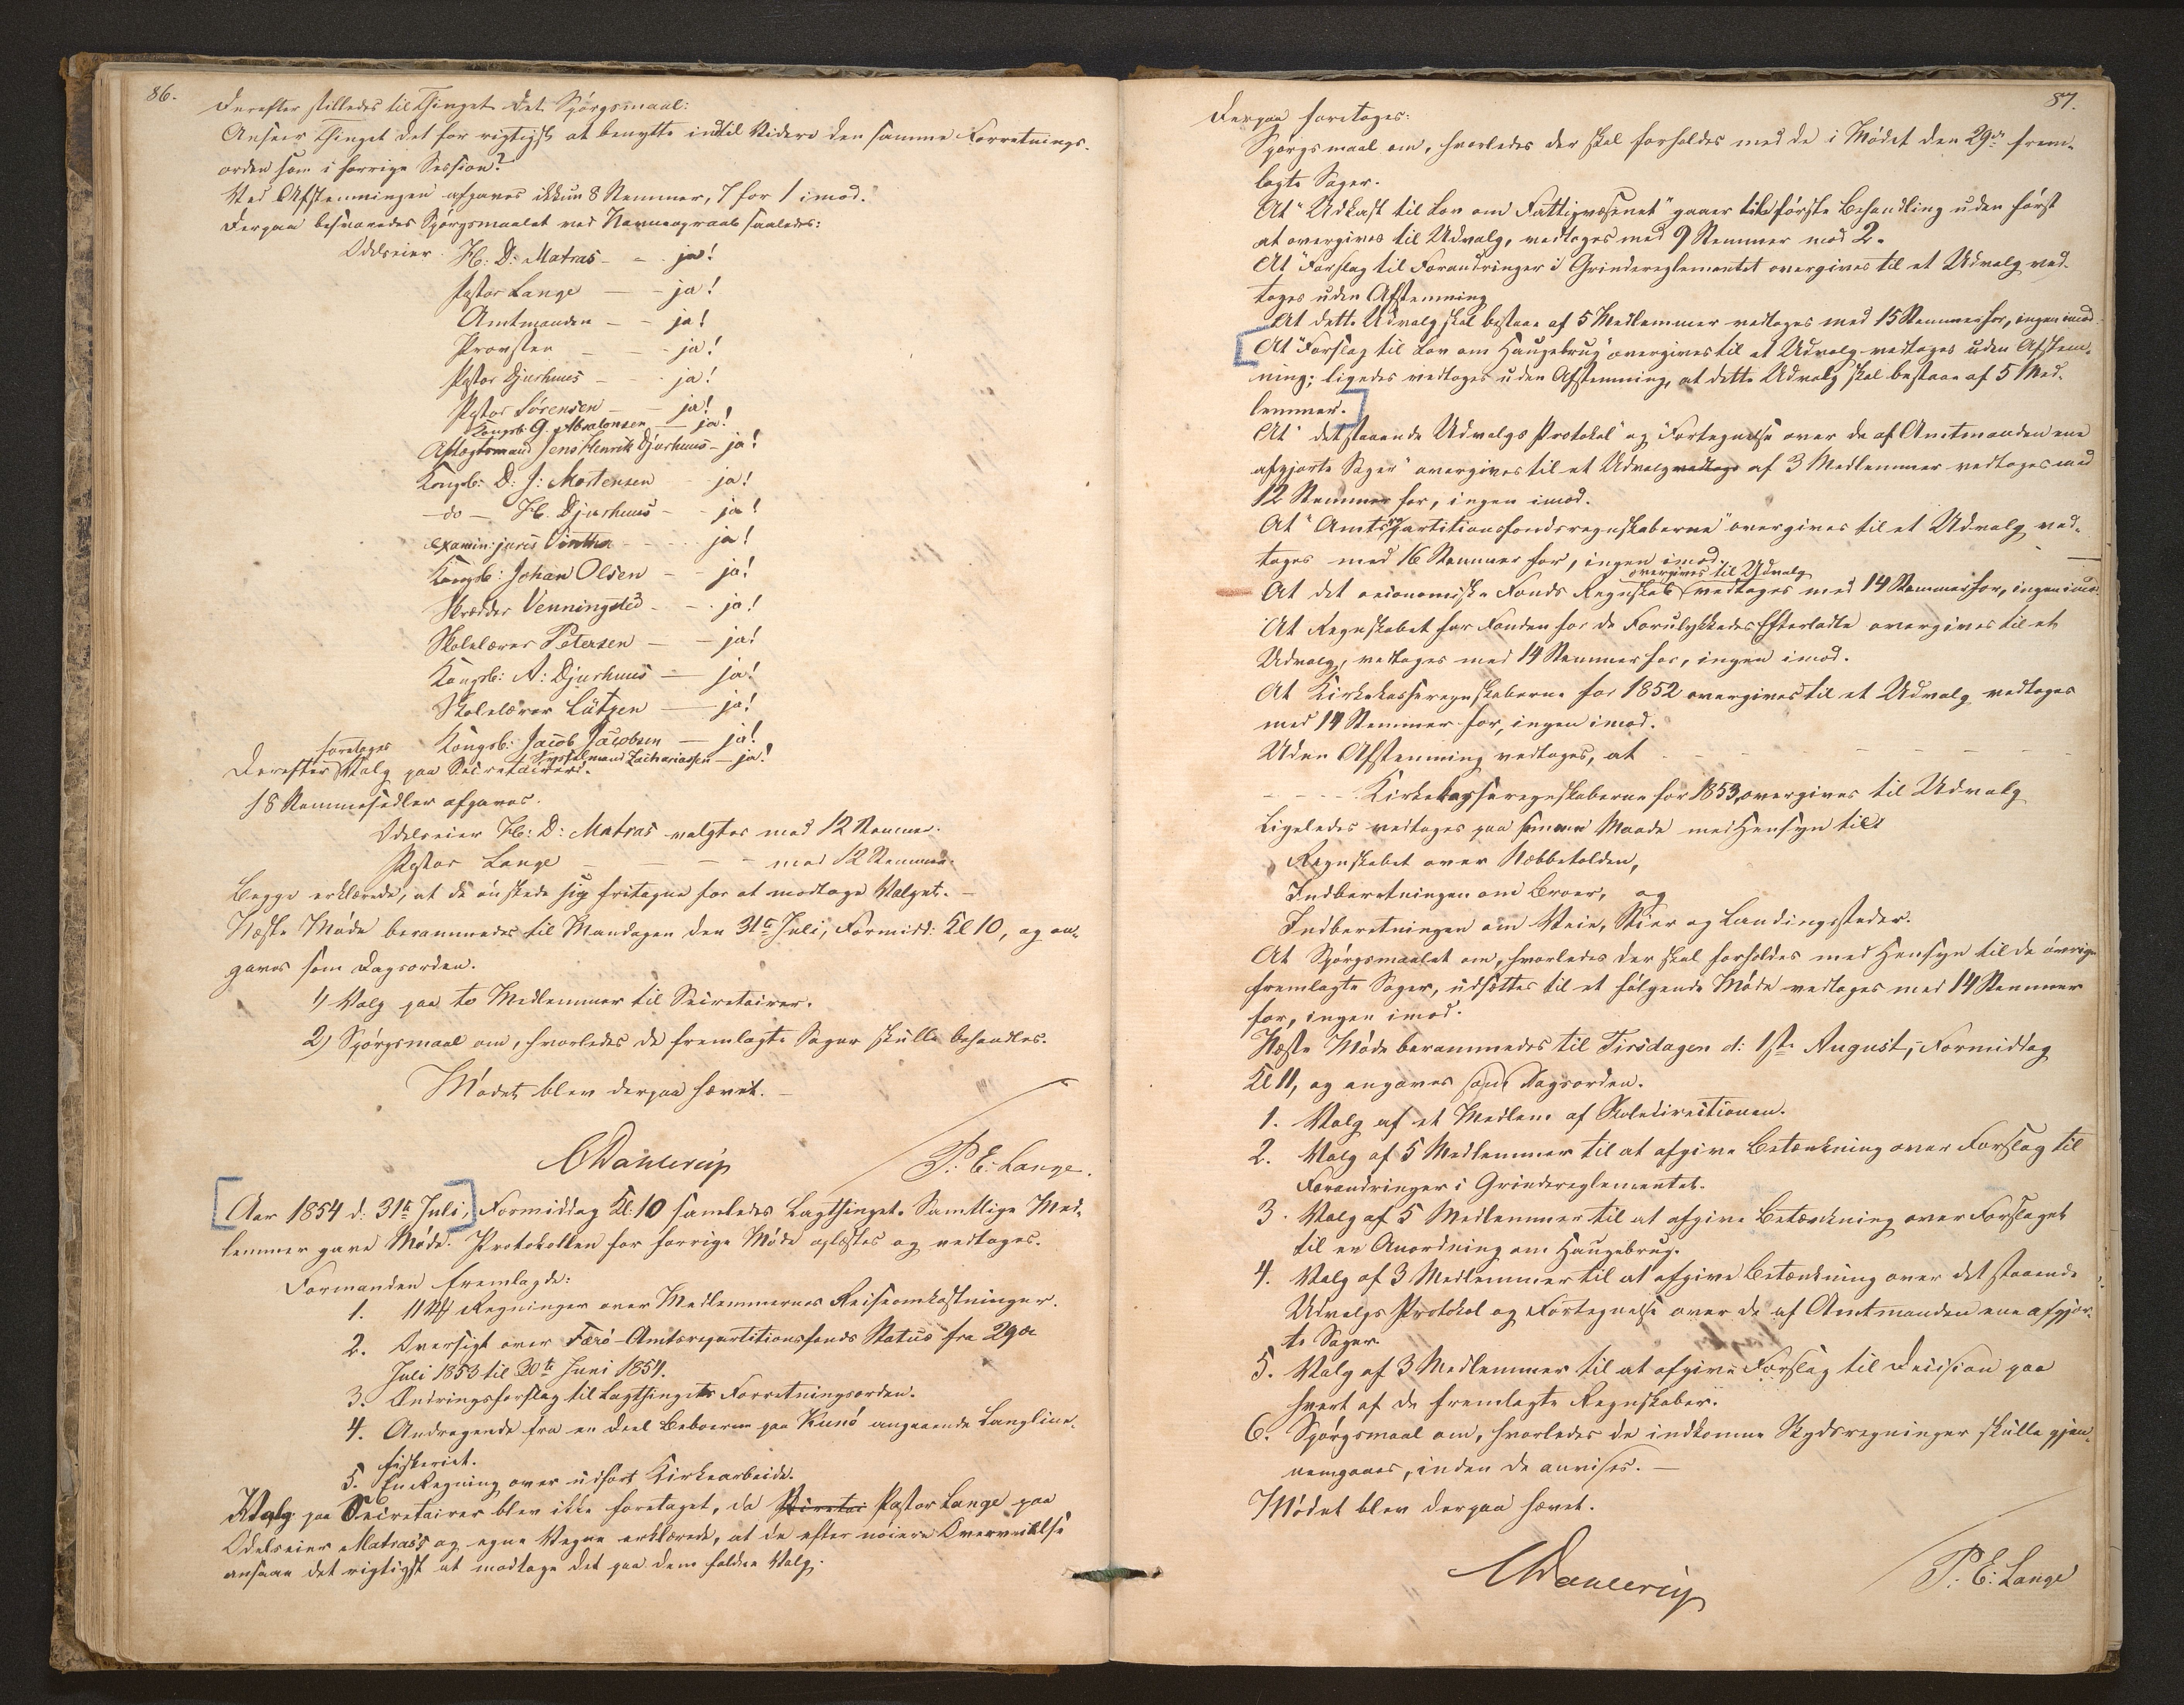 86.
Derefter stilledes til Thinget det Spörgsmaal:
Anseer Thinget det for rigtigst at benytte indtil Videre den samme Forretnings-
orden som i forrige Session?
Ved Afstemningen afgaves ikkun 8 Stemmer, 7 for 1 imod.
Derpaa besvaredes Spörgsmaalet ved Navneopraab saaledes:
Odelseier H: D: Matras - - ja!
Pastor Lange - - ja!
Amtmanden - - ja!
Provsten - - ja!
Pastor Djurhuus - - ja!
Pastor Sörensen - - ja!
Kongsb: G. Absalonsen - ja!
Aftægtsmand Jens Henrik Djurhuus - ja!
Kongsb: D: J: Mortensen - ja!
- do - H. Djurhuus - - ja!
examin: juris Winther - - - ja!
Kongsb: Johan Olsen - - ja!
Skrædder Venningsted - - ja!
Skolelærer Petersen - - ja!
Kongsb: A: Djurhuus - ja!
Skolelærer Lützen - ja!
Kongsb: Jacob Jacobsen - ja!
Zachariassen - ja!
Derefter foretoges Valg paa Secretairer.
18 Stemmesedler afgaves.
Odelseier H: D: Matras valgtes med 12 Stemmer.
Pastor Lange - - - med 12 Stemmer.
Begge erklærede, at de önskede sig fritagne for at modtage Valget. -
Næste Möde berammedes til Mandagen den 31te Juli, Formidd: Kl 10, og an-
gaves som Dagsorden.
1) Valg paa to Medlemmer til Secretairer.
2) Spörgsmaal om, hvorledes de fremlagte Sager skulle behandles.
Mödet blev derpaa hævet. -
CDahlerup P: E: Lange.
Aar 1854 d: 31te Juli, Formiddag Kl: 10 samledes Lagthinget. Samtlige Med-
lemmer gave Möde. Protokollen for forrige Möde oplæstes og vedtoges.
Formanden fremlagde:
1. 11 Regninger over Medlemmernes Reiseomkostninger.
2. Oversigt over Færö Amtsrepartitionsfonds Status fra 29de
Juli 1853 til 30te Juni 1854.
3. Ændringsforslag til Lagthingets Forretningsorden.
4. Andragende fra en Deel Beboerne paa Kunö angaaende Langline-
fiskeriet.
5. En Regning over udfört Kirkearbeide.
Valg paa Secretairer blev ikke foretaget, da Pastor Lange paa
Odelseier Matras's og egne Vegne erklærede, at de efter nöiere Overveielse
ansaae det rigtigst at modtage det paa dem faldne Valg.
87.
Derpaa foretoges:
Spörgsmaal om, hvorledes der skal forholdes med de i Mödet den 29de frem-
lagte Sager.
At "Udkast til Lov om Fattigvæsenet" gaaer til förste Behandling uden först
at overgives til Udvalg, vedtoges med 9 Stemmer mod 2.
At "Forslag til Forandringer i Grindereglementet overgives til et Udvalg ved-
toges uden Afstemning
At dette Udvalg skal bestaae af 5 Medlemmer vedtoges med 15 Stemmer for, ingen imod
At "Forslag til Lov om Haugebrug" overgives til et Udvalg vedtoges uden Afstem-
ning; ligedes vedtoges uden Afstemning, at dette Udvalg skal bestaae af 5 Med-
lemmer.
At "det staaende Udvalgs Protokol" og "Fortegnelse over de af Amtmanden ene
afgjorte Sager" overgives til et Udvalg af 3 Medlemmer vedtoges med
12 Stemmer for, ingen imod.
At "Amtsrepartitionsfondsregnskaberne" overgives til et Udvalg ved-
toges med 16 Stemmer for, ingen imod.
At det oeconomiske Fonds Regnskab overgives til Udvalg vedtoges med 14 Stemmer for, ingen imod.
At Regnskabet for Fonden for de Forulykkedes Efterladte overgives til et
Udvalg, vedtoges med 14 Stemmer for, ingen imod.
At Kirkekasseregnskaberne for 1852 overgives til et Udvalg vedtoges
med 14 Stemmer for, ingen imod.
Uden Afstemning vedtoges, at - - - - - - -
- - - - Kirkekasseregnskaberne for 1853, overgives til Udvalg
Ligeledes vedtoges paa samme Maade med Hensyn til
Regnskabet over Næbbetolden,
Indberetningen om Broer, og
Indberetningen om Veie, Stier og Landingssteder.
At Spörgsmaalet om, hvorledes der skal forholdes med Hensyn til de övrige
fremlagte Sager, udsættes til et fölgende Möde vedtoges med 14 Stemmer
for, ingen imod.
Næste Möde berammedes til Tirsdagen d: 1ste August, Formiddag
Kl 11, og angaves som Dagsorden.
1. Valg af et Medlem af Skoledirectionen.
2. Valg af 5 Medlemmer til at afgive Betænkning over Forslag til
Forandringer i Grindereglementet.
3. Valg af 5 Medlemmer til at afgive Betænkning over Forslaget
til en Anordning om Haugebrug.
4. Valg af 3 Medlemmer til at afgive Betænkning over det staaende
Udvalgs Protokol og Fortegnelse over de af Amtmanden ene afgjor-
te Sager.
5. Valg af 3 Medlemmer til at afgive Forslag til Decision paa
hvert af de fremlagte Regnskaber.
6. Spörgsmaal om, hvorledes de indkomne Skydsregninger skulle gjen-
nemgaaes, inden de anvises. -
Mödet blev derpaa hævet.
CDahlerup P: E: Lange